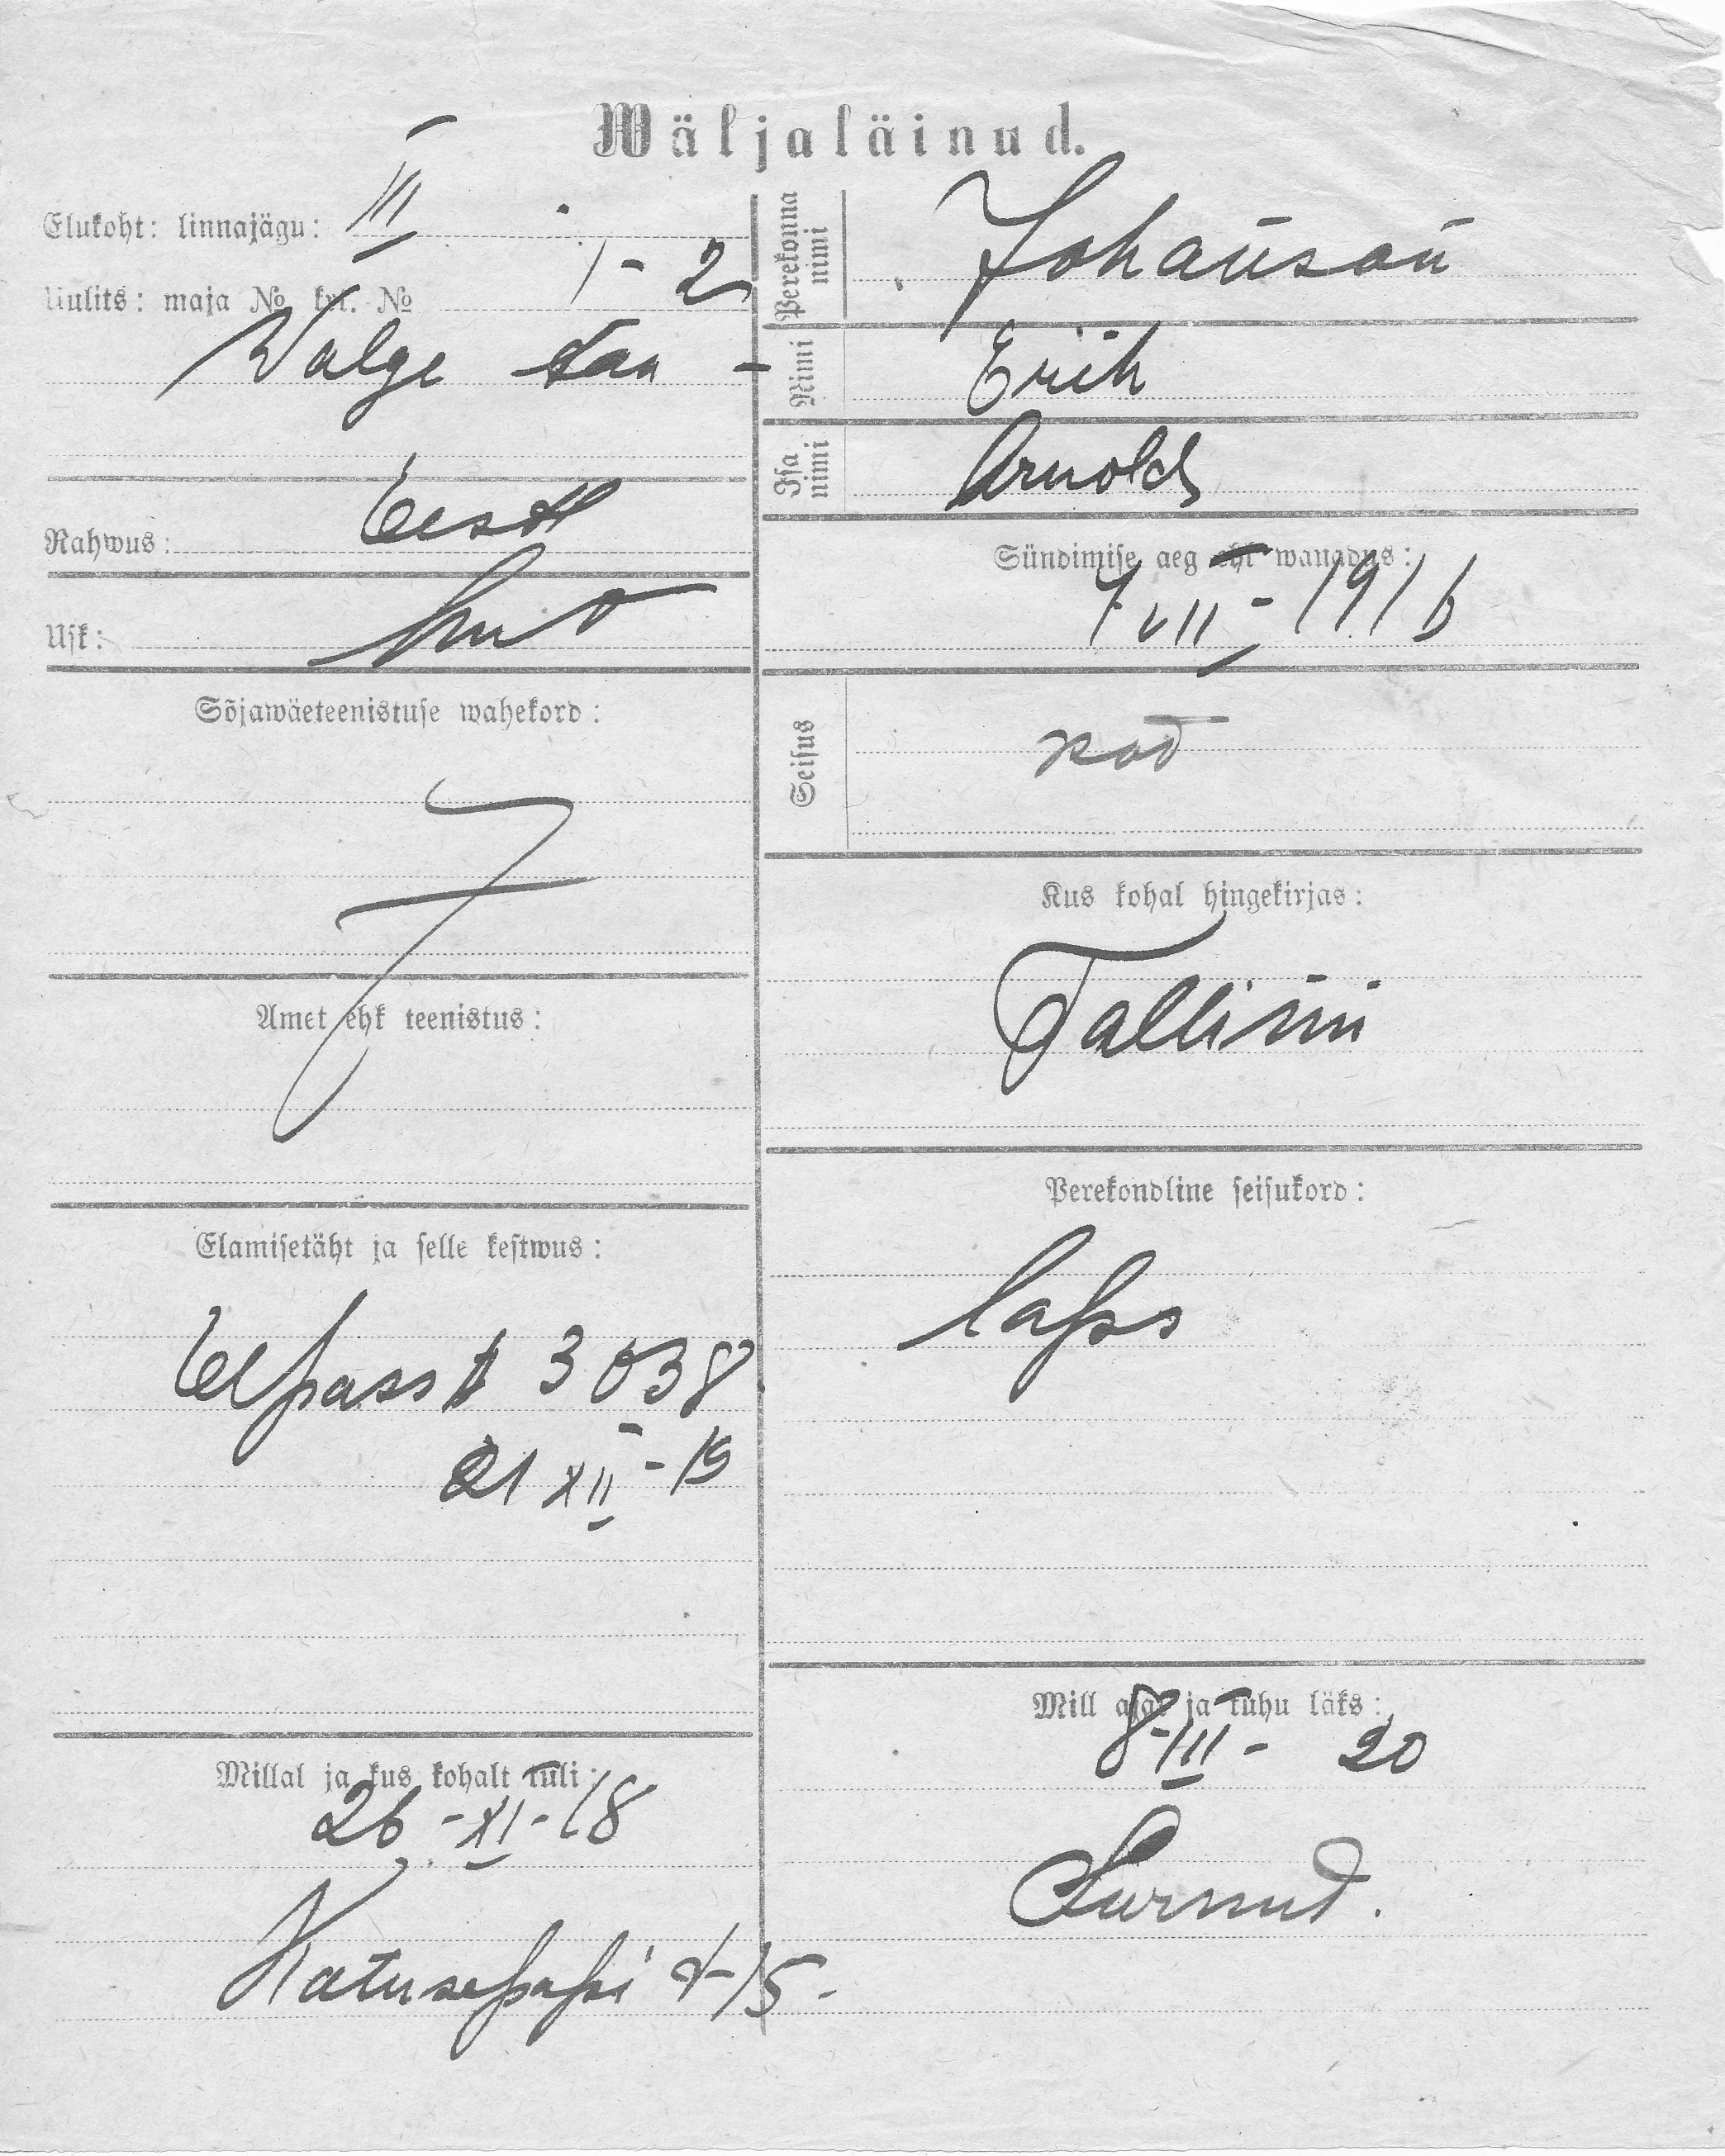 Wäljaläinud.
Elukoht: linnajägu: III
Uulits: maja № krt. № 1-2
Walge tän -
Rahwus: Eesti
Usk: lut
Sõjawäeteenistuse wahekord:
Amet ehk teenistus:
Elamisetäht ja selle kestwus:
Elpass № 3038
21 XII - 19
Millal ja kus kohalt tuli:
26 - XI - 18
Katusepapi t 15 -
Perekonna nimi Johanson
Nimi Erich
Isa nimi Arnold
Sündimise aeg ehk wanadus:
VII - 1916
Seisus kod
Kus kohal hingekirjas:
Tallinn
Perekondline seisukord:
laps
Mill ajal ja kuhu läks:
8-III- 20
Surnud.